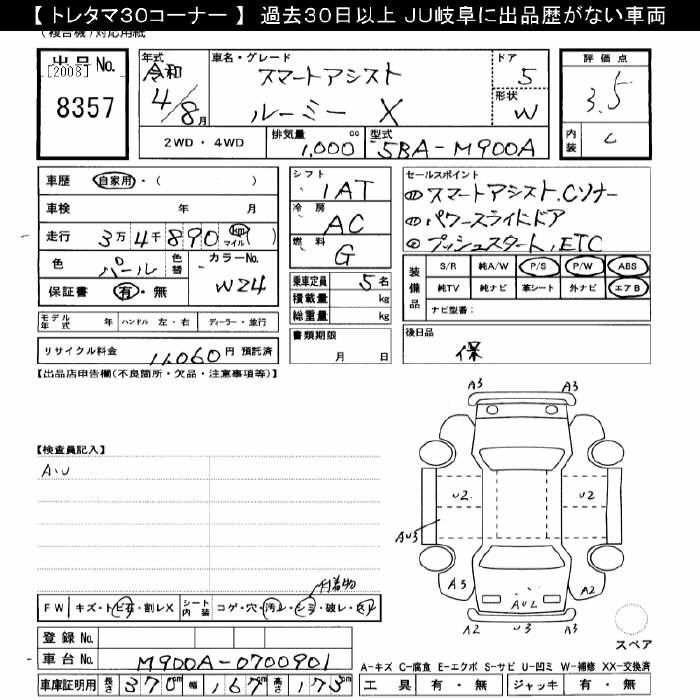 【 トレタマ30コーナー 】 過去30日以上 JU岐阜に出品歴がない車両
(複合機)対応用紙
出品 No.
[2008]
8357
年式
令和
4/8月
車名・グレード
スマートアシスト
ルーミー X
ドア
5
形状
W
評価点
3.5
内装
C
2WD ・ 4WD
排気量
1,000 cc
型式
5BA-M900A
車歴 自家用・( )
車検 年 月
走行 3万4千890 km マイル ( )
色 パール 色替
カラーNo. W24
保証書 有・無
シフト
IAT
冷房
AC
燃料
G
乗車定員 5 名
積載量 kg
総重量 kg
セールスポイント
① スマートアシスト.Cソナー
⑪ パワースライドドア
プッシュスタート,ETC
装備品
S/R 純A/W P/S P/W ABS
純TV 純ナビ 革シート 外ナビ エアB
ナビ型番:
モデル年式 年 ハンドル 左・右 ディーラー・並行
リサイクル料金 11,060 円 預託済
書類期限
月 日
後日品
保
【出品店申告欄(不良箇所・欠品・注意事項等)】
【検査員記入】
A・U
A3 A3
U2 U2
AU3
A3 A2
AU2
A2 U3 A3
スペア
付着物
FW キズ・トビ石・割レX シート内装 コゲ・穴・汚レ・シミ・破レ・スレ
登録 No.
車台 No. M900A-0700901
車庫証明用 長さ 370cm 幅 167cm 高さ 173cm
A-キズ C-腐食 E-エクボ S-サビ U-凹ミ W-補修 XX-交換済
工具 有・無 ジャッキ 有・無